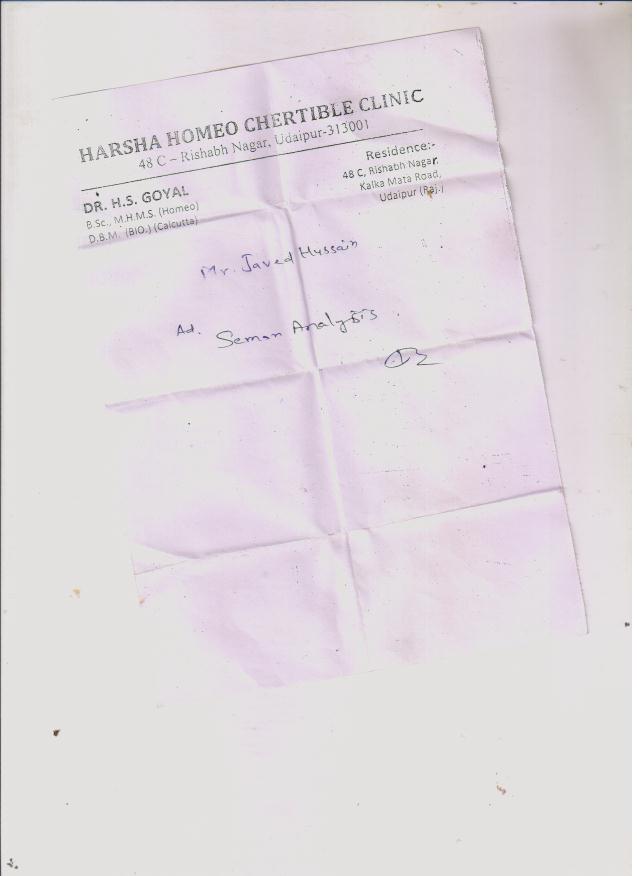 HARSHA HOMEO CHERTIBLE CLINIC
48 C – Rishabh Nagar, Udaipur-313001
DR. H.S. GOYAL
B.Sc., M.H.M.S. (Homeo)
D.B.M. (BIO.) (Calcutta)
Residence:-
48 C, Rishabh Nagar,
Kalka Mata Road,
Udaipur (Raj.)
Mr. Javed Hussain
Ad. Seman Analysis